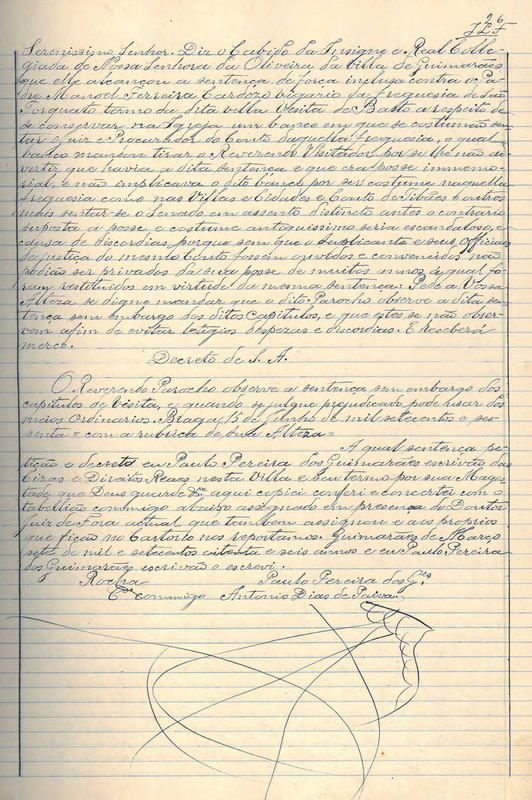 26
Serenissimo Senhor. Diz o Cabido da Insigne e Real Colle-
giada de Nossa Senhora da Oliveira da Villa de Guimarães
que elle alcançou a sentença de força inclusa contra o Pa-
dre Manoel Ferreira Cardozo vigario da freguesia de São
Torquato termo da dita villa visita de Basto a respeito de
se conservar na Igreja um banco em que se costumão sen-
tar o Juiz e Procurador do Couto daquella freguesia, o qual
banco mandou tirar o Reverendo Visitador por se lhe não ad-
vertir que havia a dita sentença e que era posse immemo-
rial, e não implicava o dito banco por ser costume naquella
freguesia como nas Villas e Cidades e Couto de Tibães e outros
mais sentar-se o Senado em assento distincto antes o contrario
suposta a posse e costume antiquissimo seria escandaloso, e
causa de discordias, porque sem que o Suplicante e seus Officiaes
da justiça do mesmo Couto fossem ouvidos e convencidos não
podião ser privados da sua posse de muitos annos á qual fo-
ram restituidos em virtude da mesma sentença: Pede a Vossa
Alteza se digne mandar que o dito Parocho observe a dita sen-
tença sem embargo dos ditos Capitulos, e que estes se não obser-
vem afim de evitar letigios despezas e discordias. E receberá
merce.
Decreto de S. A.
O Reverendo Parocho observe a sentença sem embargo dos
capitulos de visita, e quando se julgue prejudicado pode usar dos
meios Ordinarios. Braga 15 de Junho de mil setecentos e ses-
senta = com a rubrica de Sua Alteza =
A qual sentença pe-
tição e decreto eu Paulo Pereira dos Guimarães escrivão das
Cizas e Direitos Reaes nesta Villa e seu termo por sua Mages-
tade que Deus guarde aqui copiei conferi e concertei com o
tabellião commigo abaixo assignado em presença do Doutor
Juiz de Fora actual que tambem assignou e aos proprios
que ficão no Cartorio nos reportamos. Guimarães de Março
sete de mil e setecentos oitenta e seis annos e eu Paulo Pereira
dos Guimarães escrivão o escrevi.
Rocha Paulo Pereira dos G.es
E commigo Antonio Dias de Paiva